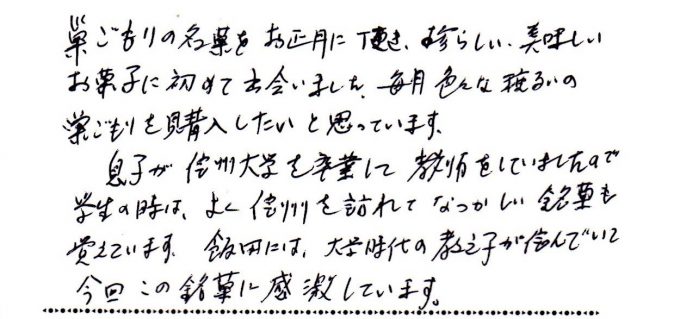 巣ごもりの名菓をお正月に頂き、珍らしい、美味しい
お菓子に初めて出会いました、毎月色々な種るいの
巣ごもりを購入したいと思っています。
息子が信州大学を卒業して教師をしていましたので
学生の時は、よく信州を訪れてなつかしい銘菓も
覚えています。飯田には、大学時代の教え子が住んでいて
今回この銘菓に感激しています。